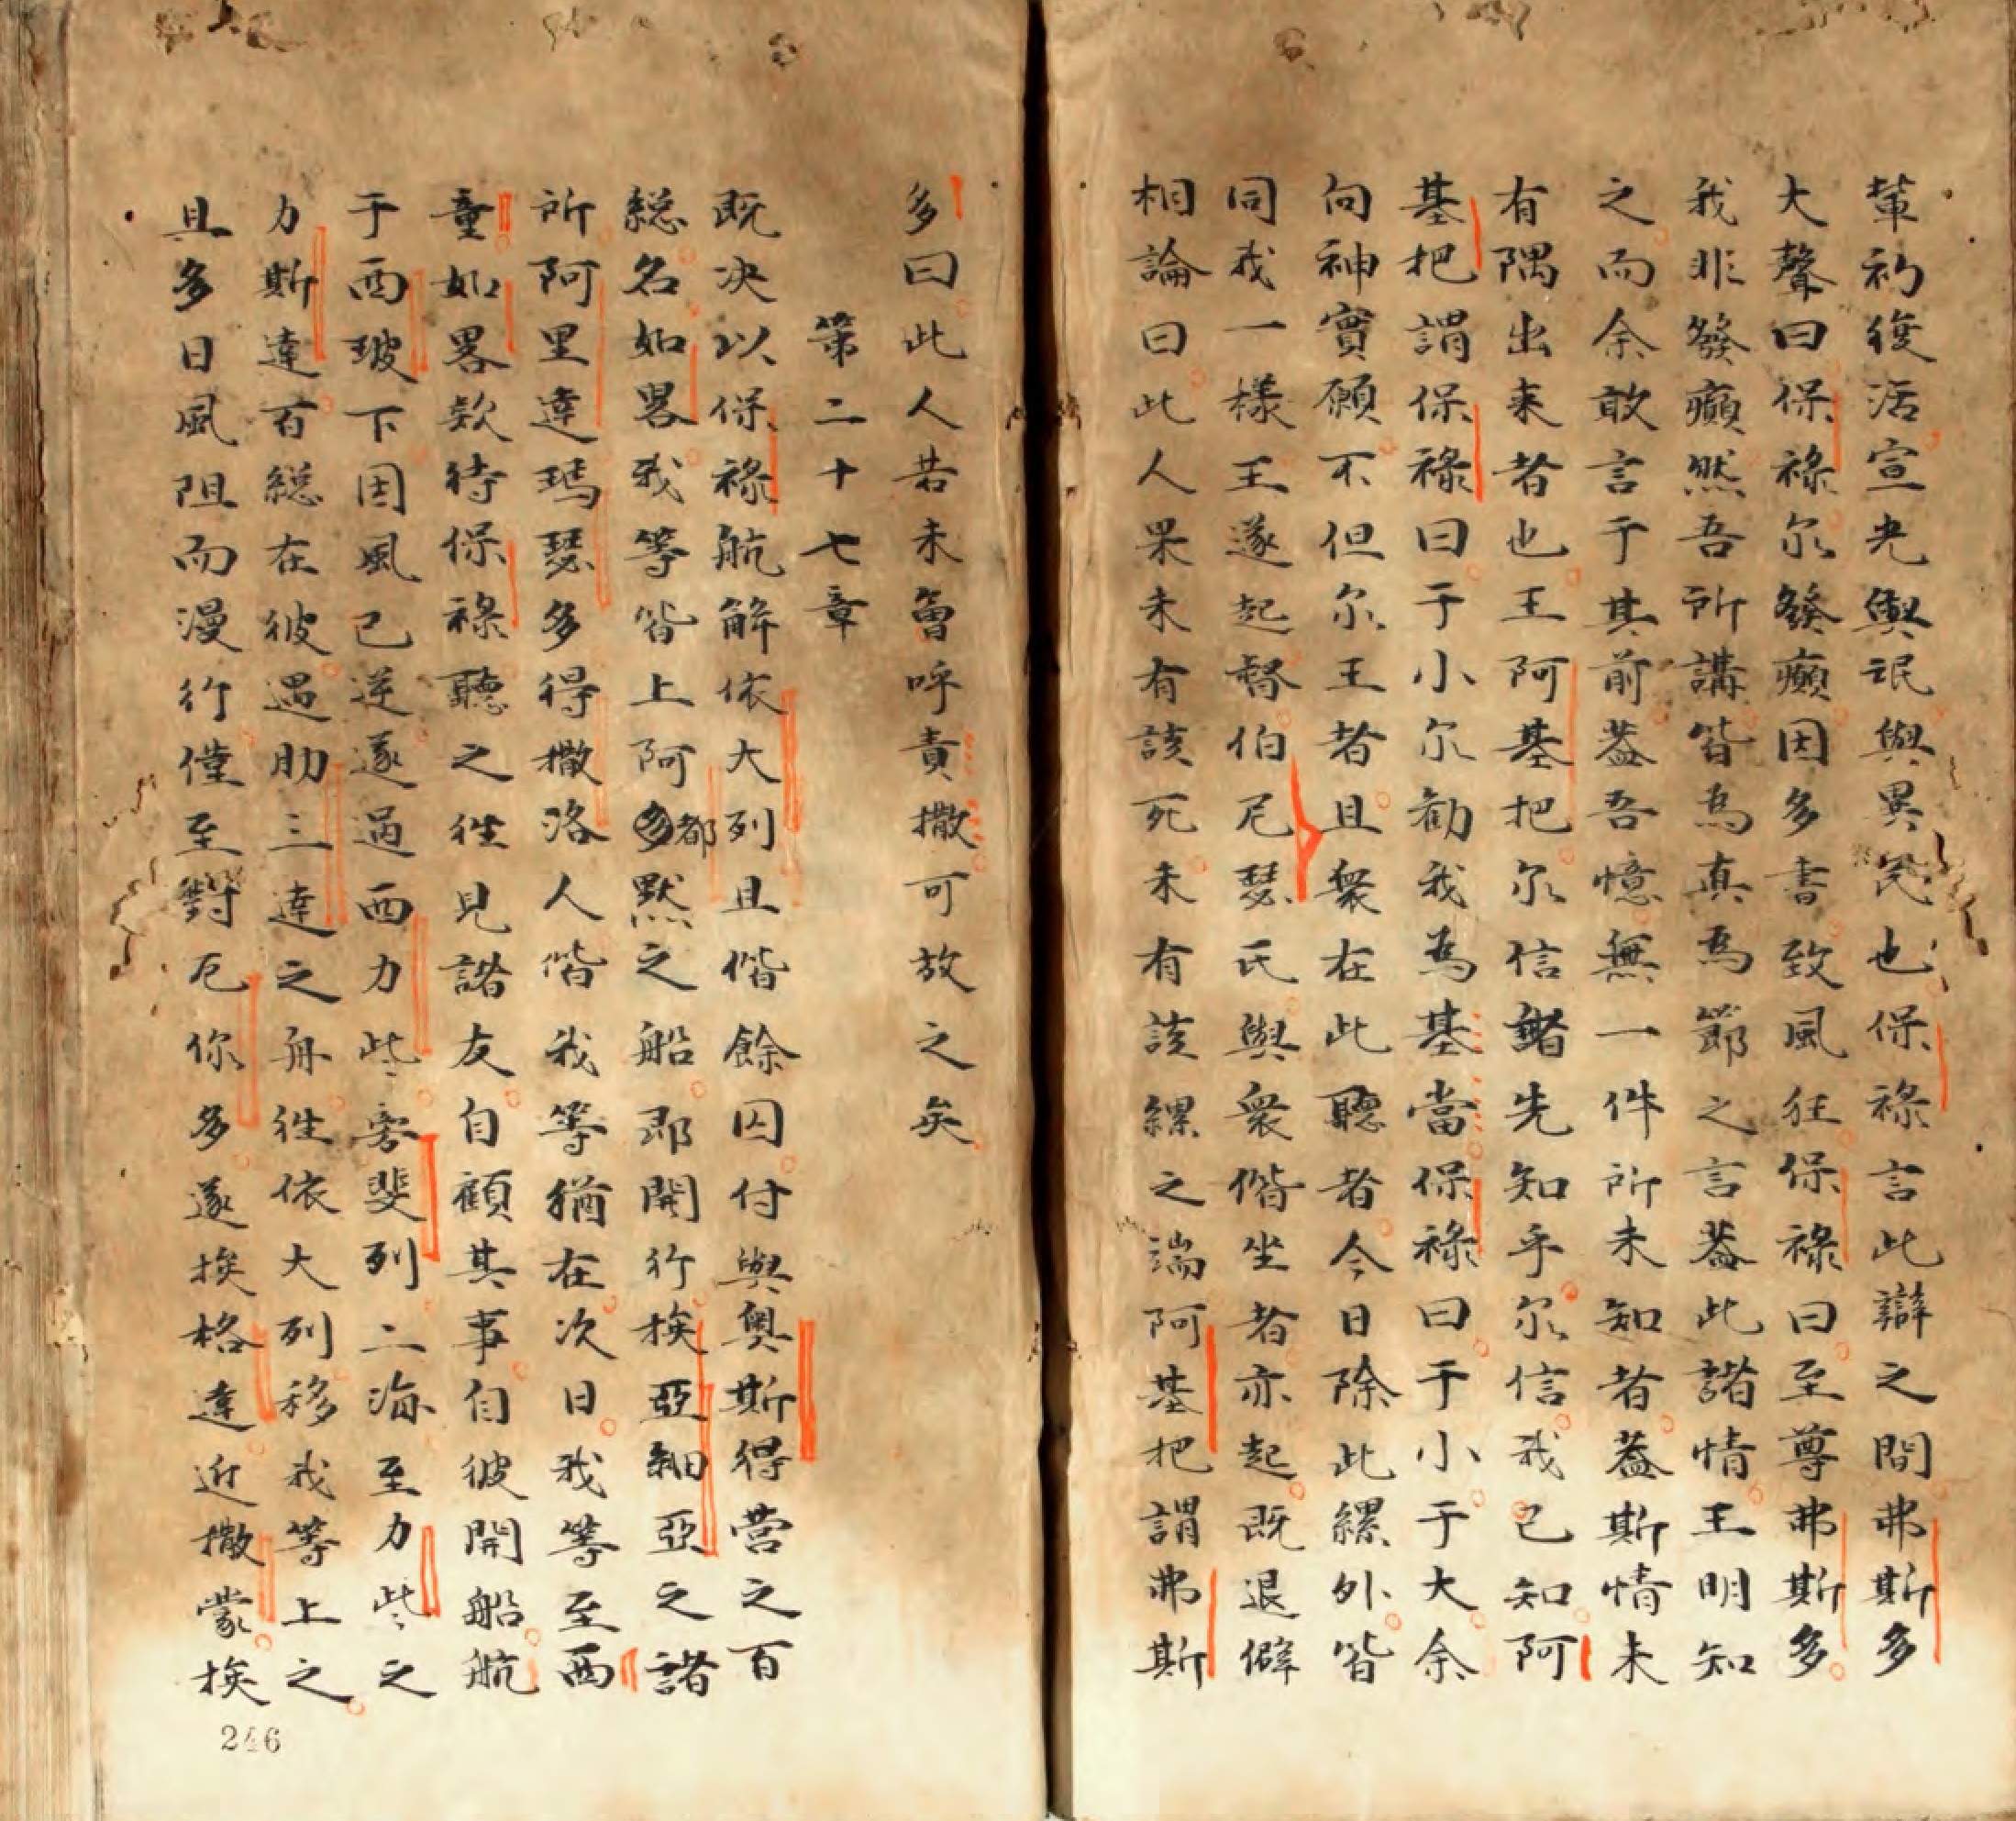 輩初復活宣光與氓與異民也保祿言此辯之間弗斯多
大聲曰保祿尔發癲因多書致風狂保祿曰至尊弗斯多
我非發癲然吾所講皆爲真爲節之言葢此諸情王明知
之而余敢言于其前葢吾憶無一件所未知者葢斯情未
有隅出来者也王阿基把尔信諸先知乎尔信我已知阿
基把謂保祿曰于小尔勸我為基當保祿曰于小于大余
向神實願不但尔王者且衆在此聽者今日除此縲外皆
同我一樣王遂起督伯尼瑟氏與衆偕坐者亦起既退僻
相論曰此人果未有該死未有該縲之端阿基把謂弗斯
多曰此人若未曾呼責撒可放之矣
第二十七章
既决以保祿航解依大列且偕餘囚付與奧斯得营之百
総名如畧我等皆上阿都默之船即開行挨亞細亞之諸
所阿里達瑪瑟多得撒洛人偕我等猶在次日我等至西
童如畧欵待保祿聽之徃見諸友自顧其事自彼開船航
于西玻下因風已逆遂過西力些旁斐列二海至力些之
力斯達百総在彼遇肋三達之舟徃依大列移我等上之
且多日風阻而漫行僅至對厄你多遂挨格達近撒蒙挨
246